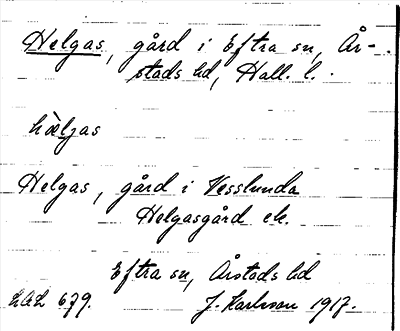 Helgas, gård i Eftra sn, År-
stads hd, Hall. l.
hèlgas
Helgas, gård i Vesslunda
Helgasgård ek.
Eftra sn, Årstads hd
679. J. Karlsson 1917.